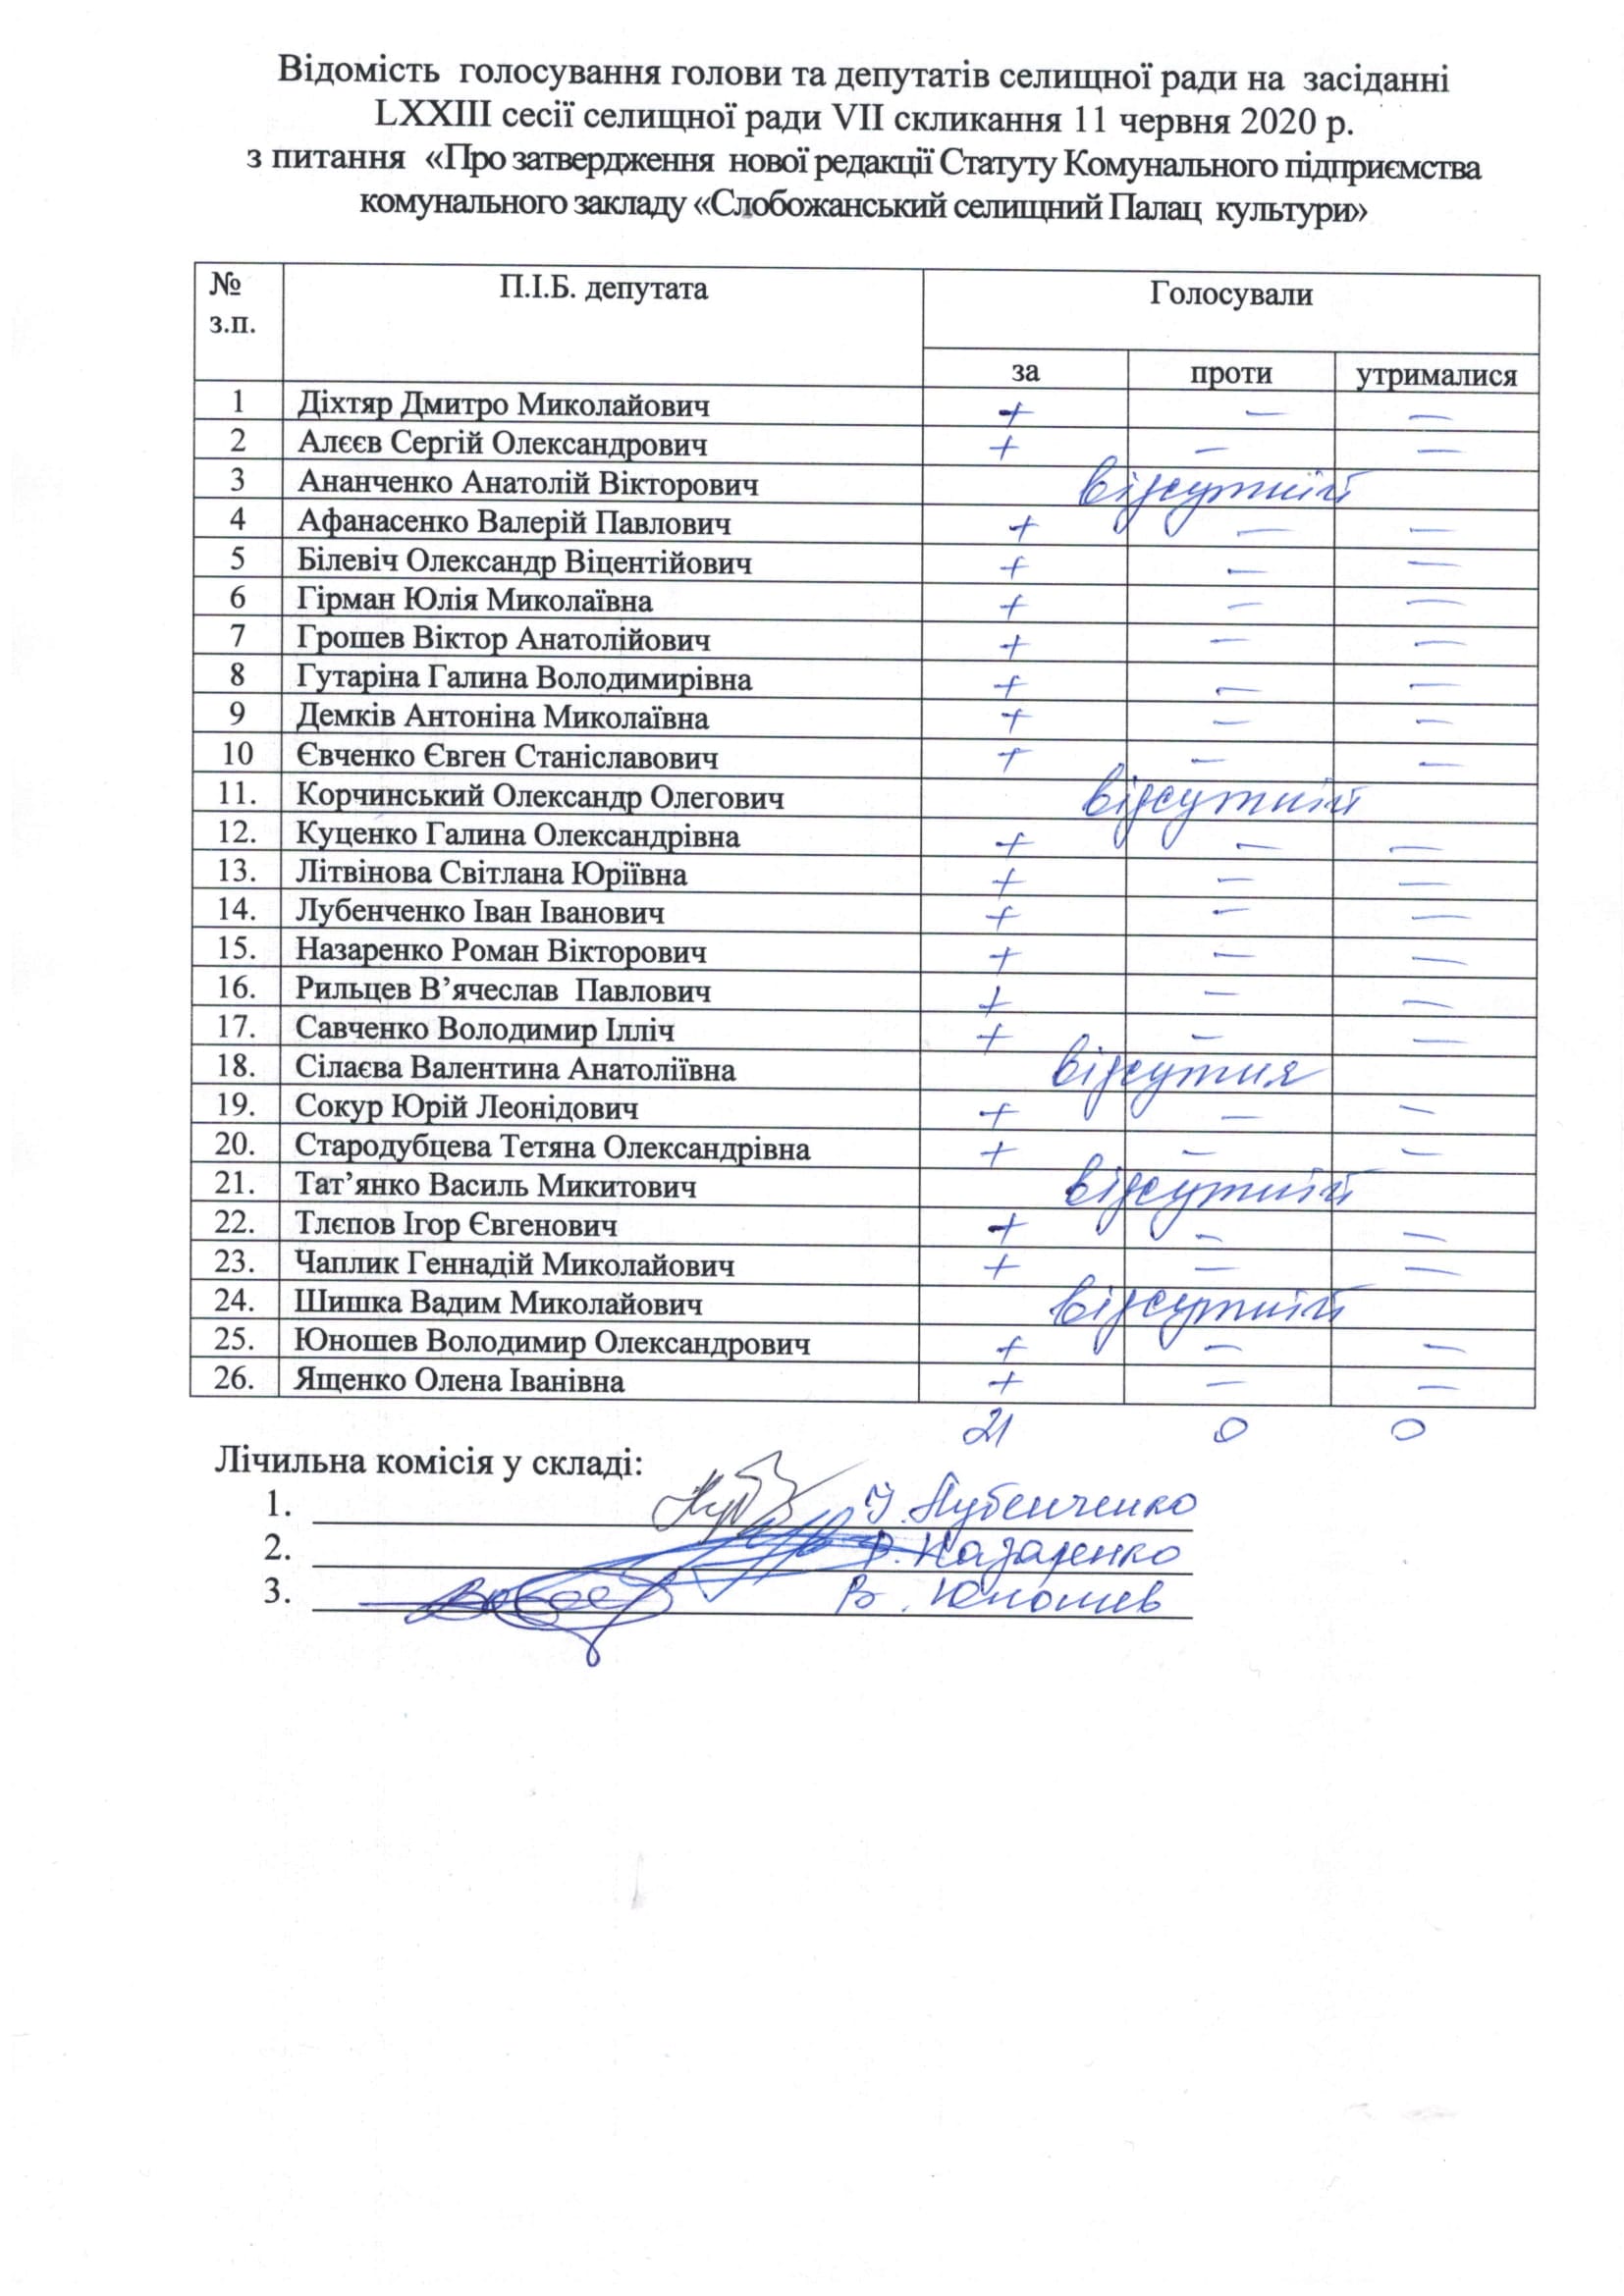 Відомість голосування голови та депутатів селищної ради на засіданні
LXXIII сесії селищної ради VII скликання 11 червня 2020 р.
з питання «Про затвердження нової редакції Статуту Комунального підприємства
комунального закладу «Слобожанський селищний Палац культури»
№ з.п. П.І.Б. депутата Голосували
за проти утрималися
1 Діхтяр Дмитро Миколайович + — —
2 Алєєв Сергій Олександрович + — —
3 Ананченко Анатолій Вікторович відсутній
4 Афанасенко Валерій Павлович + — —
5 Білевіч Олександр Віцентійович + — —
6 Гірман Юлія Миколаївна + — —
7 Грошев Віктор Анатолійович + — —
8 Гутаріна Галина Володимирівна + — —
9 Демків Антоніна Миколаївна + — —
10 Євченко Євген Станіславович + — —
11. Корчинський Олександр Олегович відсутній
12. Куценко Галина Олександрівна + — —
13. Літвінова Світлана Юріївна + — —
14. Лубенченко Іван Іванович + — —
15. Назаренко Роман Вікторович + — —
16. Рильцев В’ячеслав Павлович + — —
17. Савченко Володимир Ілліч + — —
18. Сілаєва Валентина Анатоліївна відсутня
19. Сокур Юрій Леонідович + — —
20. Стародубцева Тетяна Олександрівна + — —
21. Тат’янко Василь Микитович відсутній
22. Тлєпов Ігор Євгенович + — —
23. Чаплик Геннадій Миколайович + — —
24. Шишка Вадим Миколайович відсутній
25. Юношев Володимир Олександрович + — —
26. Ященко Олена Іванівна + — —
21 0 0
Лічильна комісія у складі:
1. І. Лубенченко
2. Р. Назаренко
3. В. Юношев